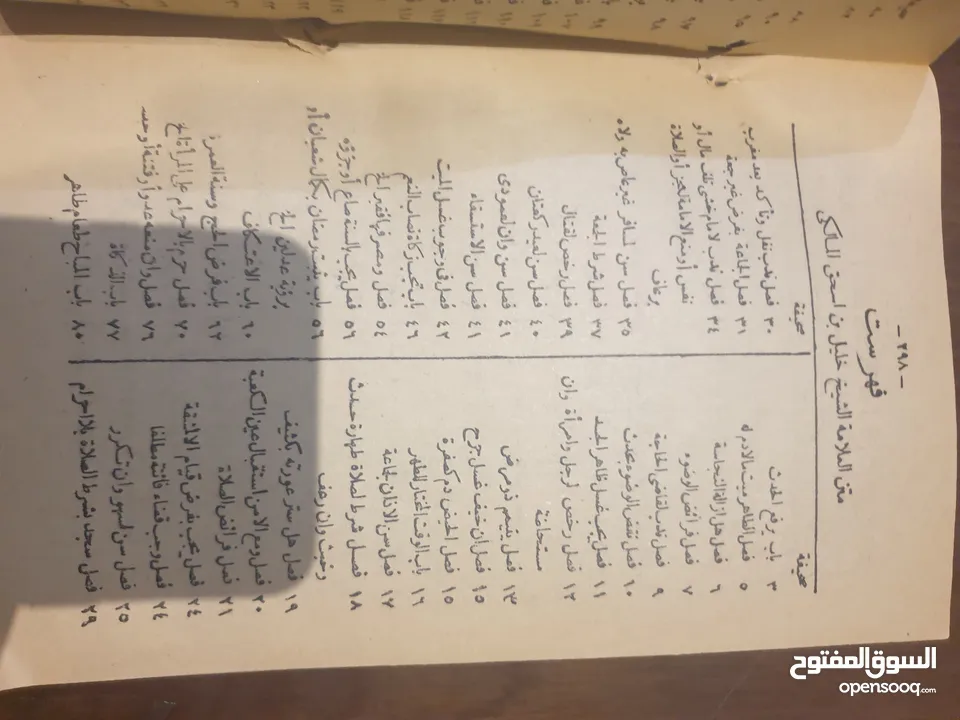 - ٢٩٨ -
فهرست
متن العلامة الشيخ خليل بن اسحق المالكى
صحيفة
٣ باب يرفع الحدث
٥ فصل الطاهر ميت مالادم له
٦ فصل هل ازالة النجاسة
٧ فصل فرائض الوضوء
٩ فصل ندب لقاضى الحاجة
١٠ فصل نقض الوضوء بحدث
١١ فصل يجب غسل ظاهر الجسد
١٢ فصل رخص لرجل وامرأة وان
مستحاضة
١٣ فصل يتيمم ذو مرض
١٥ فصل ان خيف غسل جرح
١٥ فصل الحيض دم كصفرة
١٦ باب الوقت المختار للظهر
١٧ فصل سن الاذان لجماعة
١٨ فصل شرط لصلاة طهارة حدث
وخبث وان رعف
١٩ فصل هل ستر عورته بكثيف
٢٠ فصل ومع الامن استقبال عين الكعبة
٢١ فصل فرائض الصلاة
٢٤ فصل يجب بفرض قيام الالمشقة
٢٤ فصل وجب قضاء فائتة مطلقا
٢٥ فصل سن لسهو وان تكرر
٢٩ فصل سجد بشرط الصلاة بلا احرام
صحيفة
٣٠ فصل ندب نفل وتأكد بعد مغرب
٣١ فصل الجماعة بفرض غير جمعة
٣٤ فصل ندب لامام خشى تلف مال أو
نفس أو منع الامامة لعجز أو الصلاة
برعاف
٣٥ فصل سن لمسافر غير عاص به ولاه
٣٧ فصل شرط الجمعة
٣٩ فصل رخص لقتال
٤٠ فصل سن لعيد ركعتان
٤١ فصل سن وان لعمودى
٤١ فصل سن الاستسقاء
٤٢ فصل فى وجوب غسل الميت
٤٦ باب تجب زكاة نصاب النعم
٥٤ فصل ومصرفها فقير الخ
٥٦ فصل يجب بالسنة صاع أو جزؤه
٥٦ باب يثبت رمضان بكمال شعبان أو
برؤية عدلين الخ
٦٠ باب الاعتكاف
٦٢ باب فرض الحج وسنة العمرة
٧٠ فصل حرم بالاحرام على المرأة الخ
٧٦ فصل وان منعه عدو أو فتنة أو حبس
٧٧ باب الذكاة
٨٠ باب المباح طعام طاهر
السوق المفتوح
opensooq.com